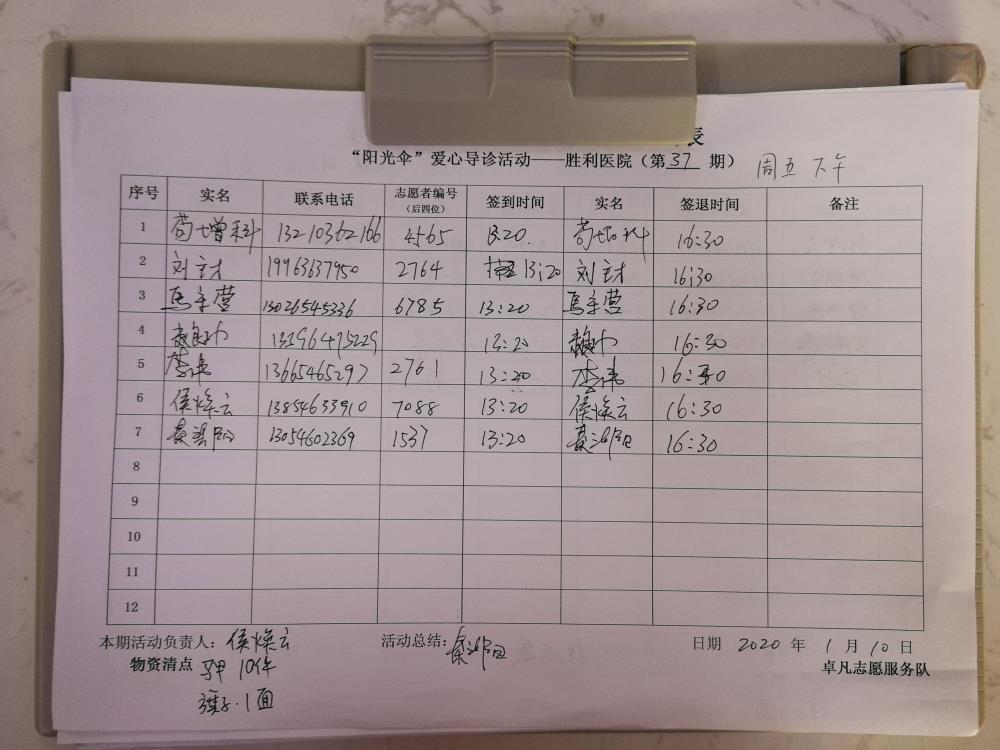 表
“阳光伞”爱心导诊活动——胜利医院（第 37 期） 周五 下午
序号 实名 联系电话 志愿者编号（后四位） 签到时间 实名 签退时间 备注
1 荀增科 13210362166 4565 13:20 荀增科 16:30
2 刘 19963637950 2764 13:20 刘 16:30
3 13026545336 6785 13:20 16:30
4 13296475229 13:20 16:30
5 李伟 13665465297 2761 13:20 李伟 16:30
6 侯焕云 13854633910 7088 13:20 侯焕云 16:30
7 13054602369 1537 13:20 16:30
8
9
10
11
12
本期活动负责人：侯焕云 活动总结： 日期 2020 年 1 月 10 日
物资清点 马甲 10件 卓凡志愿服务队
旗子·1面